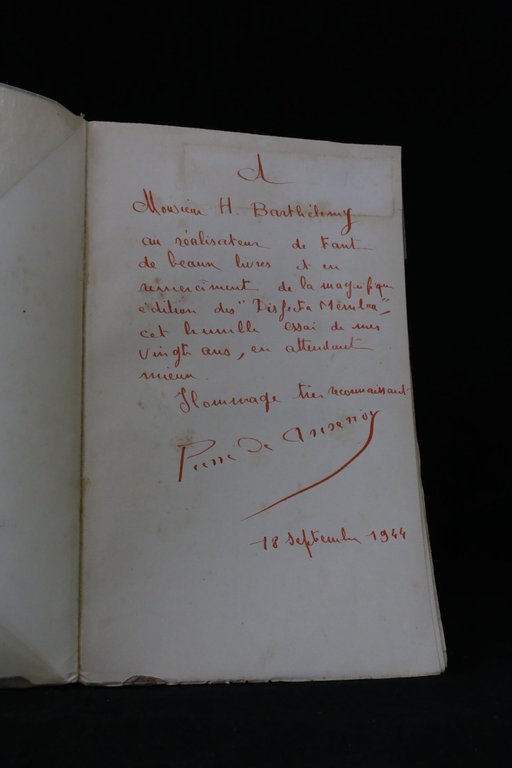 A
Monsieur H. Barthélemy
au réalisateur de tant
de beaux livres et en
remerciement de la magnifique
édition des "Disjecta Membra",
cet humble essai de mes
vingt ans, en attendant
mieux.
Hommage très reconnaissant
Pierre de
18 septembre 1944